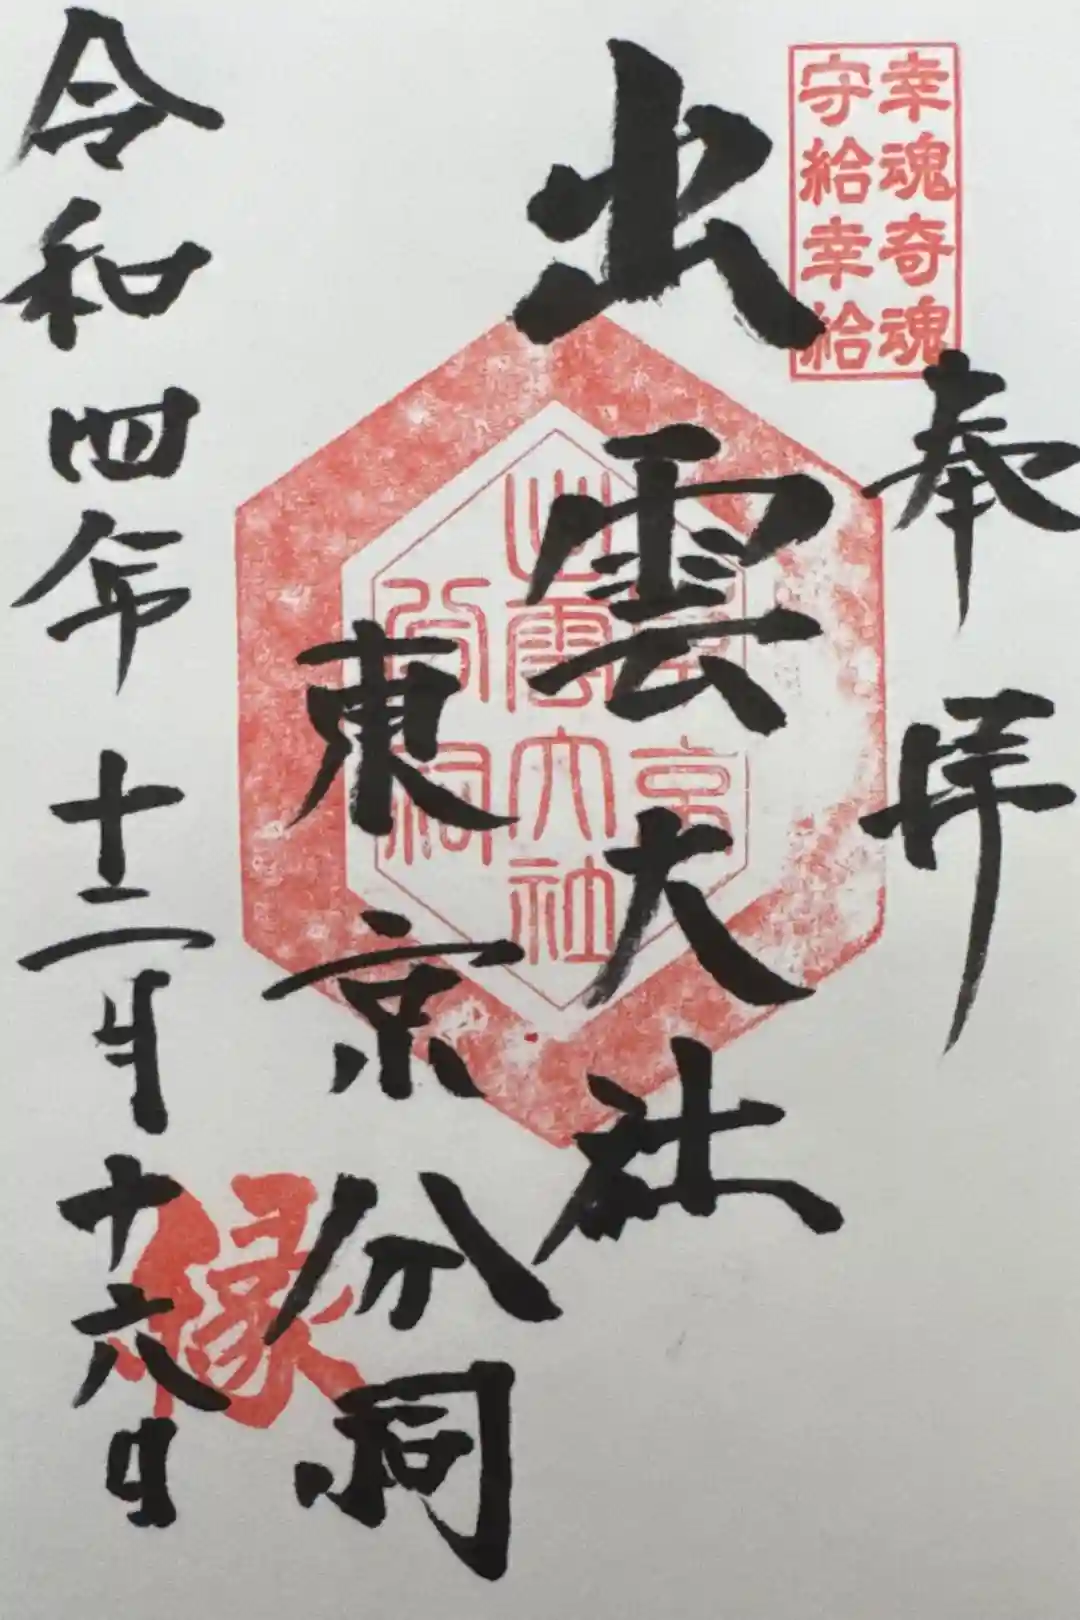 幸魂奇魂
守給幸給
奉拝
出雲大社
東京分祠
令和四年十二月十六日
東京
出雲大社
分祠
縁